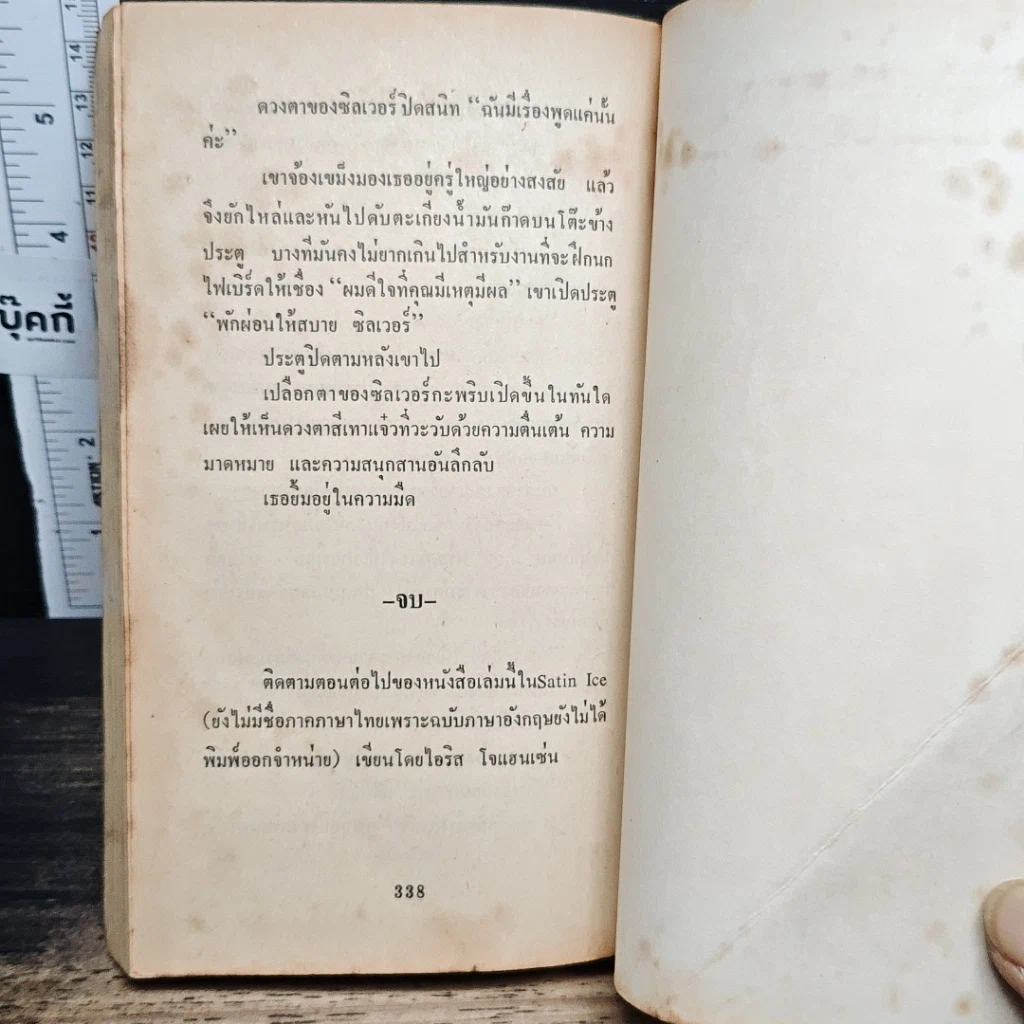 ดวงตาของซิลเวอร์ปิดสนิท “ฉันมีเรื่องพูดแค่นั้น
ค่ะ”
เขาจ้องเขม็งมองเธออยู่ครู่ใหญ่อย่างสงสัย แล้ว
จึงยักไหล่และหันไปดับตะเกียงน้ำมันก๊าดบนโต๊ะข้าง
ประตู บางทีมันคงไม่ยากเกินไปสำหรับงานที่จะฝึกนก
ไฟเบิร์ดให้เชื่อง “ผมดีใจที่คุณมีเหตุมีผล” เขาเปิดประตู
“พักผ่อนให้สบาย ซิลเวอร์”
ประตูปิดตามหลังเขาไป
เปลือกตาของซิลเวอร์กะพริบเปิดขึ้นในทันใด
เผยให้เห็นดวงตาสีเทาแจ๋วที่วะวับด้วยความตื่นเต้น ความ
มาดหมาย และความสนุกสานอันลึกลับ
เธอยิ้มอยู่ในความมืด
–จบ–
ติดตามตอนต่อไปของหนังสือเล่มนี้ในSatin Ice
(ยังไม่มีชื่อภาคภาษาไทยเพราะฉบับภาษาอังกฤษยังไม่ได้
พิมพ์ออกจำหน่าย) เขียนโดยไอริส โจแฮนเซ่น
338
บุ๊คกี้
5
4
2
1
14
13
12
11
10